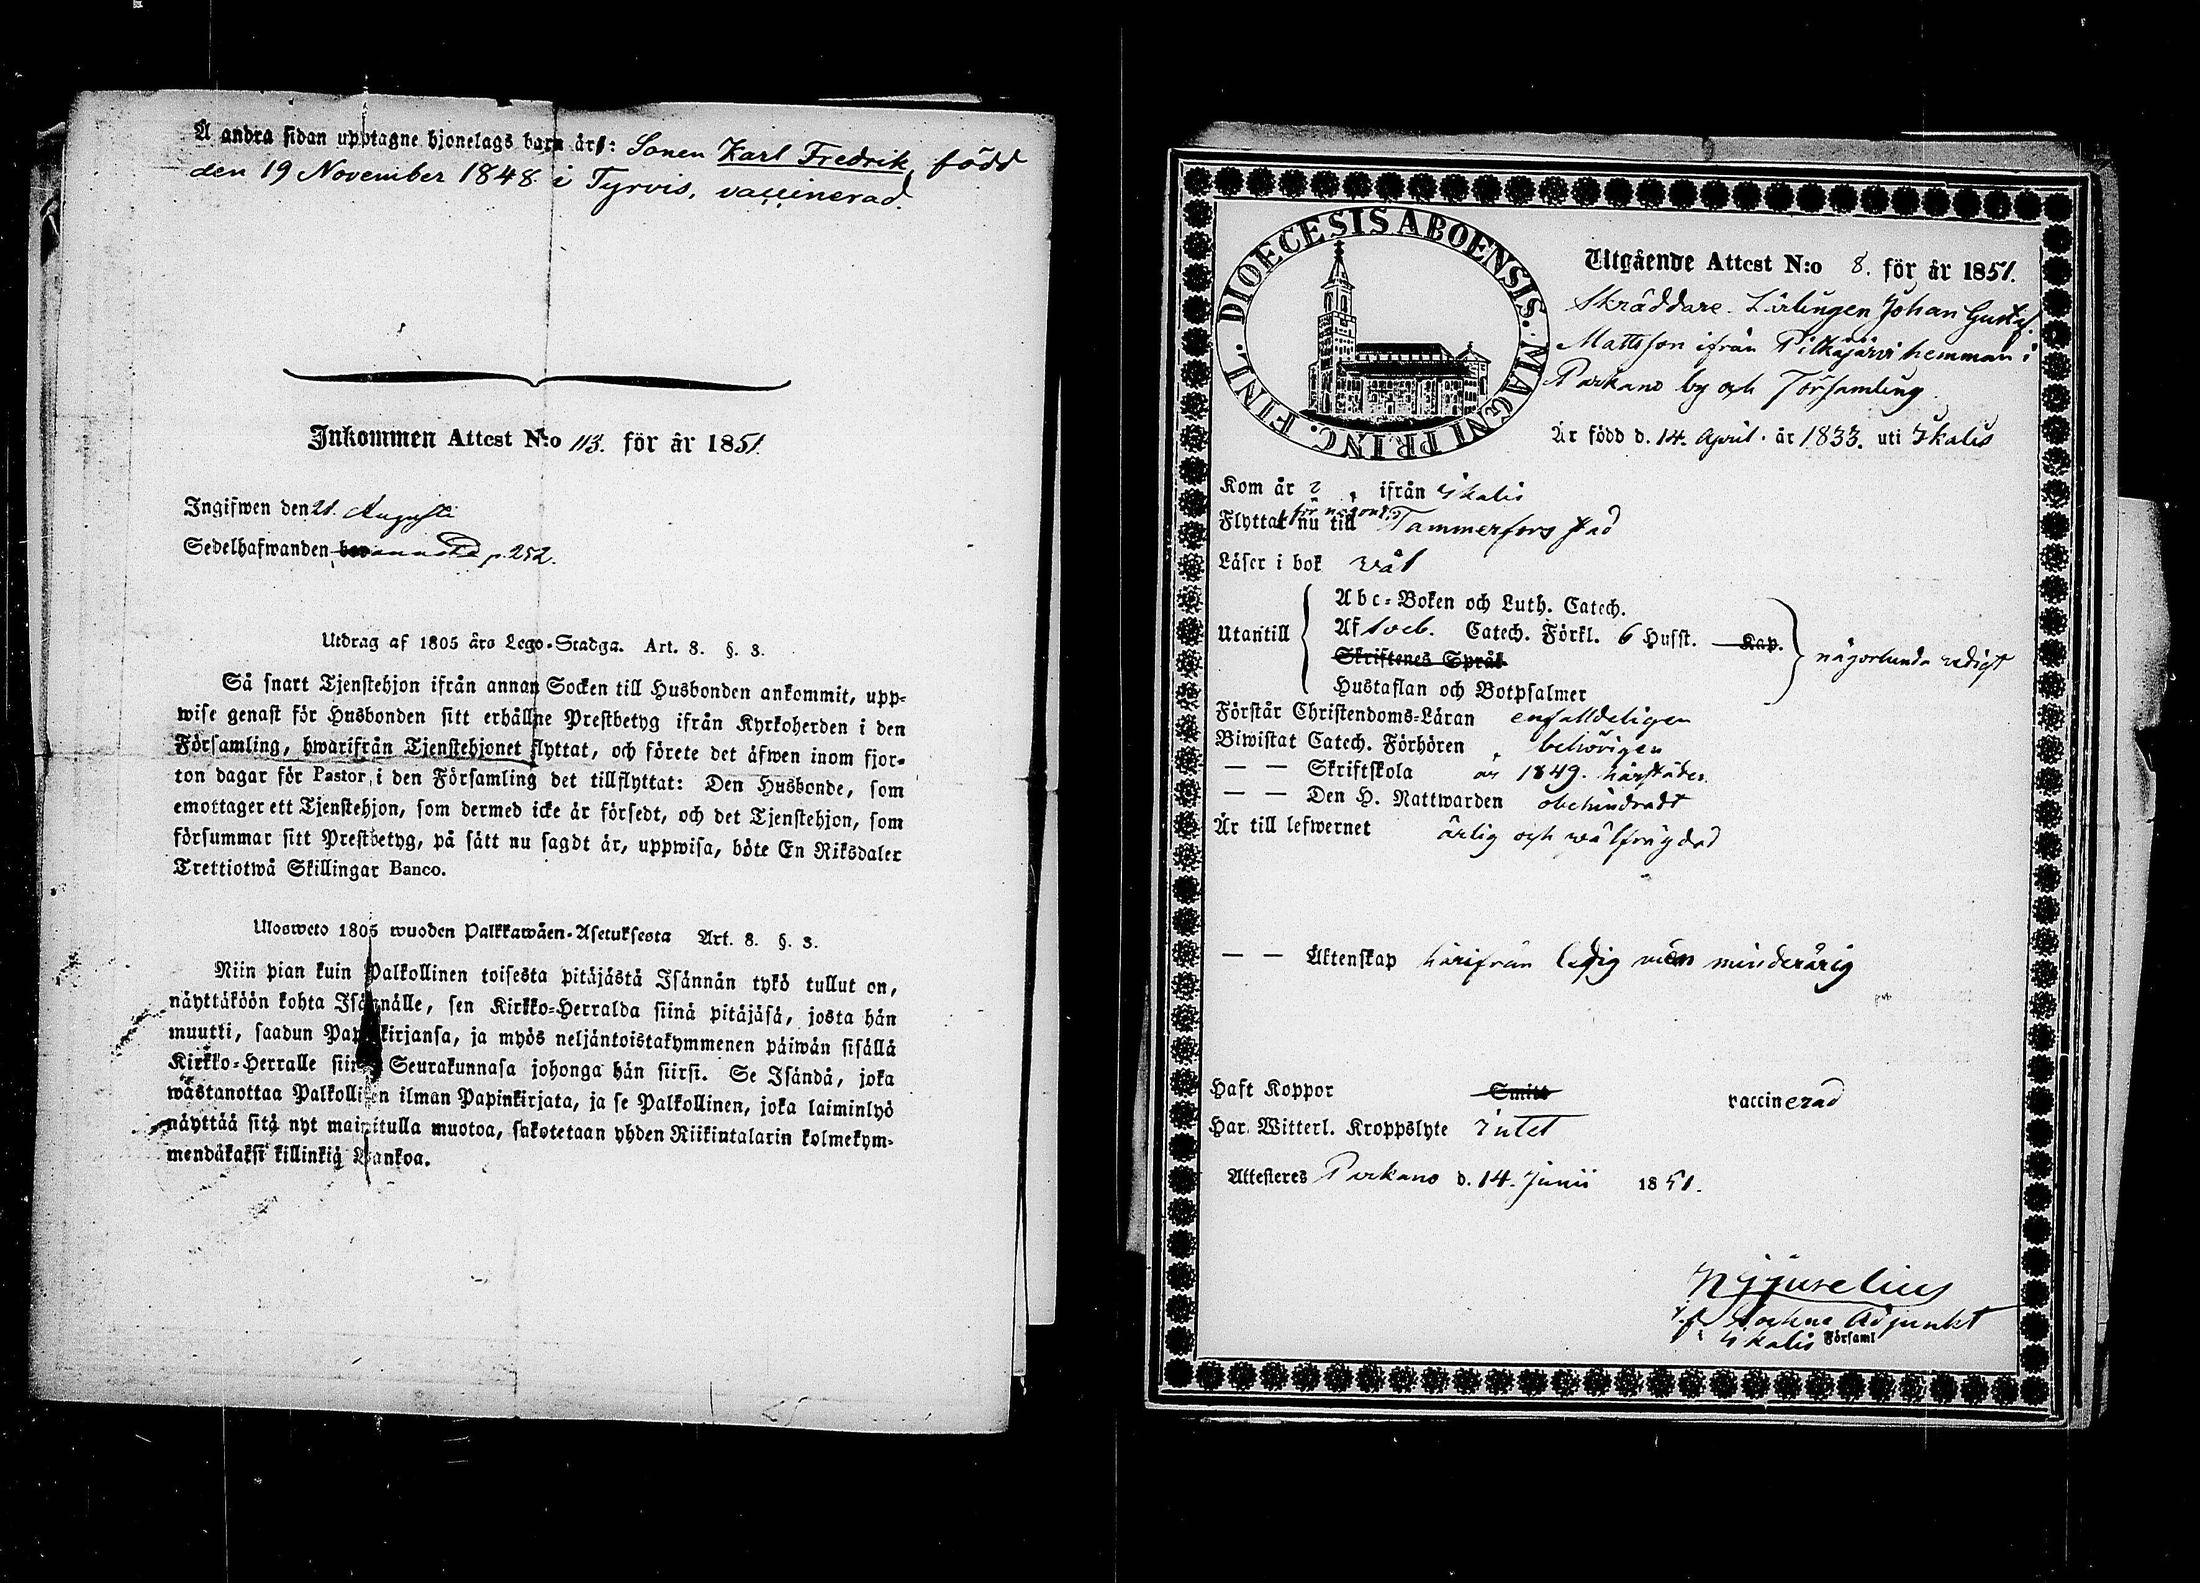 Å andra sidan upptagne hjonelags barn är: Sonen Karl Fredrik, född
den 19 November 1848 i Tyrvis, vaccinerad.
Inkommen Attest N:o 113. för år 1851.
Ingifwen den 21. Augusti
Sedelhafwanden p. 252.
Utdrag af 1805 års Lego-Stadga. Art. 8. §. 3.
Så snart Tjenstehjon ifrån annan Socken till Husbonden ankommit, upp-
wise genast för Husbonden sitt erhållne Prestbetyg ifrån Kyrkoherden i den
Församling, hwarifrån Tjenstehjonet flyttat, och förete det äfwen inom fjor-
ton dagar för Pastor i den Församling det tillflyttat: Den Husbonde, som
emottager ett Tjenstehjon, som dermed icke är försedt, och det Tjenstehjon, som
försummar sitt Prestbetyg, på sätt nu sagdt är, uppwisa, böte En Riksdaler
Trettiotwå Skillingar Banco.
Ulosweto 1805 wuoden Palkkawäen-Asetuksesta Art. 8. §. 3.
Niin pian kuin Palkollinen toisesta pitäjästä Isännän tykö tullut on,
näyttäköön kohta Isännälle, sen Kirkko-Herralda siinä pitäjäsä, josta hän
muutti, saadun Papinkirjansa, ja myös neljäntoistakymmenen päiwän sisällä
Kirkko-Herralle siinä Seurakunnasa johonga hän siirsi. Se Isändä, joka
wastanottaa Palkollisen ilman Papinkirjata, ja se Palkollinen, joka laiminlyö
näyttää sitä nyt mainitulla muotoa, sakotetaan yhden Riikintalarin kolmekym-
mendäkaksi killinkiä Bankoa.
DIOECESIS ABOENSIS. MAGNI PRINC. FINL.
Utgående Attest N:o 8. för år 1851.
Skräddare Lärlingen Johan Gustaf
Mattsson ifrån Pitkäjärvi hemman i
Parkano by och Församling.
Är född d. 14. April. år 1833. uti Ikalis
Kom år ifrån Ikalis
för någon tid
Flyttar nu till Tammerfors stad
Läser i bok wäl
Utantill
Abc-Boken och Luth. Catech.
Af Sveb. Catech. Förkl. 6 Husst. Kap.
Skriftenes Språk
Hustaflan och Botpsalmer
någorlunda redigt
Förstår Christendoms-Läran enfalldeligen
Biwistat Catech. Förhören behörigen
— — Skriftskola år 1849. härstädes
— — Den H. Nattwarden obehindradt
Är till lefwernet ärlig och wälfrägdad
— — Äktenskap härifrån ledig men minderårig
Haft Koppor Smitt vaccinerad
Har Witterl. Kroppslyte intet
Attesteres Parkano d. 14. Junii 1851.
Adjunkt
i Ikalis Församl